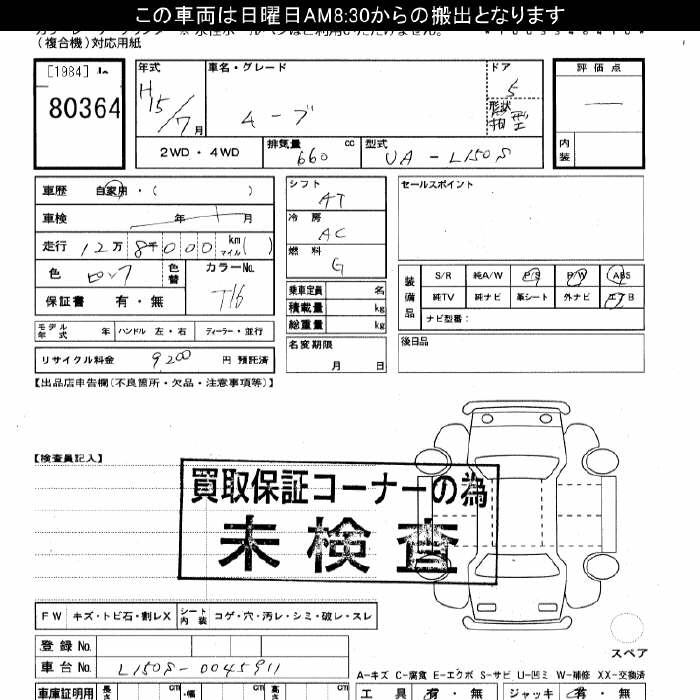 この車両は日曜日AM8:30からの搬出となります
(複合機)対応用紙
[1984]
80364
年式
H15/7月
車名・グレード
ムーブ
ドア
5
形状
箱型
評価点
—
内装
2WD・4WD
排気量 660 cc
型式 UA-L150S
車歴 自家用・( )
車検 年 月
走行 12万8千000 km マイル( )
色
色替
カラーNo.
T16
保証書 有・無
モデル年式 年 ハンドル 左・右 ディーラー・並行
リサイクル料金 9200 円 預託済
シフト
AT
冷房
AC
燃料
G
乗車定員 名
積載量 kg
総重量 kg
名変期限
月 日
セールスポイント
装備品
S/R 純A/W P/S P/W ABS
純TV 純ナビ 革シート 外ナビ エアB
ナビ型番:
後日品
【出品店申告欄(不良箇所・欠品・注意事項等)】
【検査員記入】
買取保証コーナーの為
未検査
FW キズ・トビ石・割レX シート内装 コゲ・穴・汚レ・シミ・破レ・スレ
スペア
登録No.
車台No. L150S-0045911
A-キズ C-腐食 E-エクボ S-サビ U-凹ミ W-補修 XX-交換済
車庫証明用 長さ cm 幅 cm 高さ cm
工具 有・無 ジャッキ 有・無